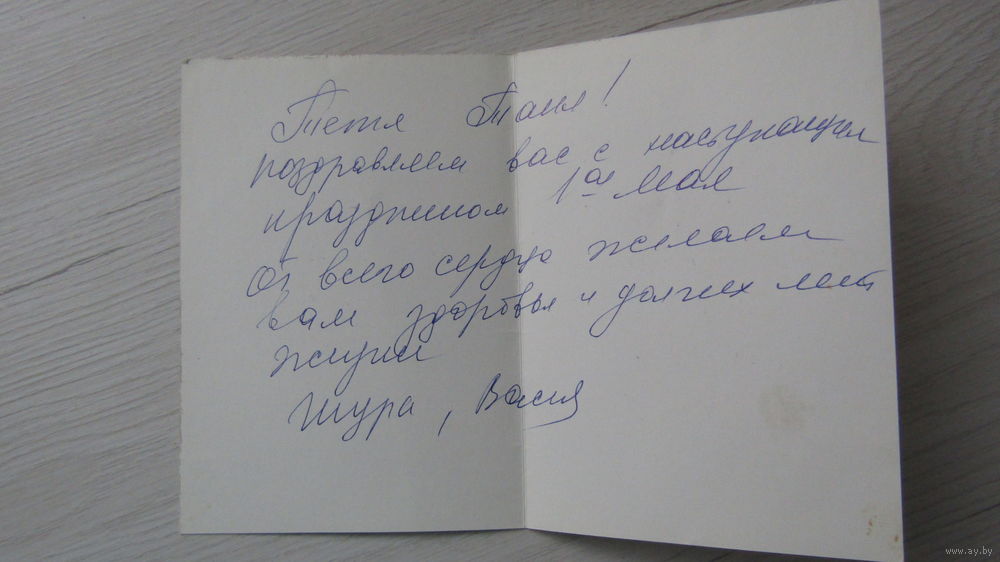 Тетя Таня!
поздравляем вас с наступающим
праздником 1ое Мая
От всего сердца желаем
вам здоровья и долгих лет
жизни
Шура, Вася
www.ay.by